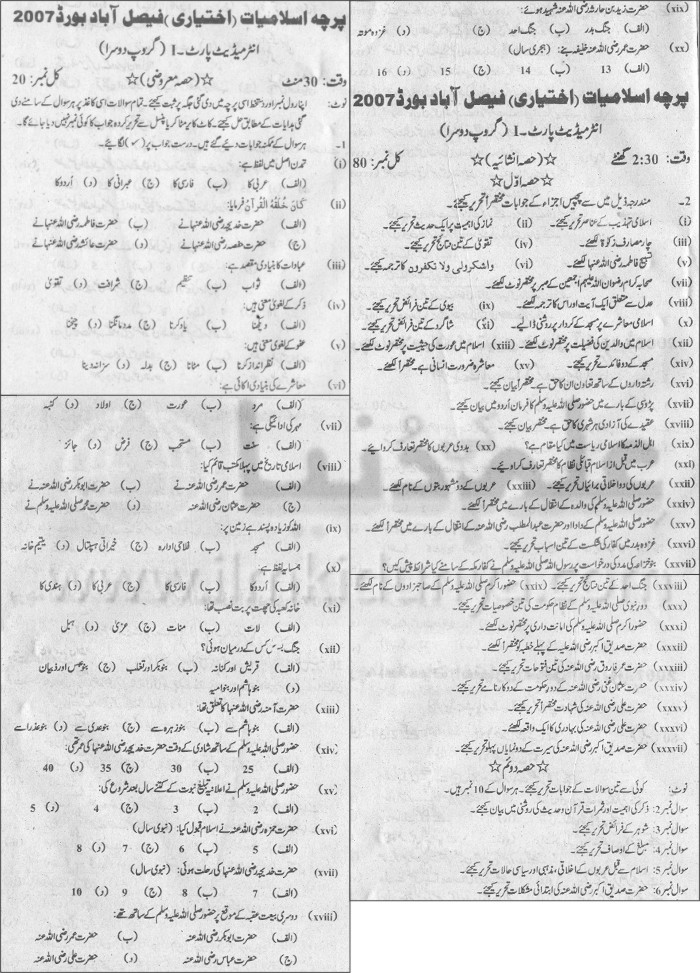 پرچہ اسلامیات (اختیاری) فیصل آباد بورڈ 2007
انٹرمیڈیٹ پارٹ-I (گروپ دوسرا)
وقت: 30 منٹ ☆(حصہ معروضی)☆ کل نمبر: 20
نوٹ: اپنا رول نمبر اور دستخط اسی پرچہ میں دی گئی جگہ پر ثبت کیجئے۔ تمام سوالات اسی کاغذ پر ہر سوال کے سامنے دی
گئی ہدایات کے مطابق حل کیجئے۔ کاٹ کر یا مٹا کر یا پنسل سے تحریر کردہ جواب کا کوئی نمبر نہیں دیا جائے گا۔
1- ہر سوال کے ممکنہ جوابات دیئے گئے ہیں۔ درست جواب پر (✓) لگائیے۔
(i) تمدن اصل میں لفظ ہے:
(الف) عربی کا (ب) فارسی کا (ج) عبرانی کا (د) اُردو کا
(ii) کَانَ خُلُقُہُ القُرآنَ فرمایا:
(الف) حضرت خدیجہ رضی اللہ عنہا نے (ب) حضرت فاطمہ رضی اللہ عنہا نے
(ج) حضرت حفصہ رضی اللہ عنہا نے (د) حضرت عائشہ رضی اللہ عنہا نے
(iii) عبادات کا بنیادی مقصد ہے:
(الف) ثواب (ب) تنظیم (ج) شرافت (د) تقویٰ
(iv) ذکر کے لغوی معنی ہیں:
(الف) دیکھنا (ب) یاد کرنا (ج) مدد مانگنا (د) چیخنا
(v) عفو کے لغوی معنی ہیں:
(الف) نظر انداز کرنا (ب) مٹانا (ج) بدلہ (د) سزا نہ دینا
(vi) معاشرے کی بنیادی اکائی ہے:
(الف) مرد (ب) عورت (ج) اولاد (د) کنبہ
(vii) مہر کی ادائیگی ہے:
(الف) سنت (ب) مستحب (ج) فرض (د) جائز
(viii) اسلامی تاریخ میں پہلا مکتب قائم کیا:
(الف) حضرت عمر رضی اللہ عنہ نے (ب) حضرت ابوبکر رضی اللہ عنہ نے
(ج) حضرت عثمان رضی اللہ عنہ (د) حضرت محمد صلی اللہ علیہ وسلم نے
(ix) اللہ کو زیادہ پسند ہے زمین پر:
(الف) مسجد (ب) فلاحی ادارہ (ج) خیراتی ہسپتال (د) یتیم خانہ
(x) حسبہ لفظ ہے:
(الف) اُردو کا (ب) فارسی کا (ج) عربی کا (د) ہندی کا
(xi) خانہ کعبہ کی چھت پر بت نصب تھا:
(الف) لات (ب) منات (ج) عزیٰ (د) ہبل
(xii) جنگ بسوس کس کے درمیان ہوئی؟
(الف) قریش اور کنانہ (ب) بنو بکر اور تغلب (ج) بنو عبس اور ذبیان
(د) بنو ہاشم اور بنو امیہ
(xiii) حضرت آمنہ رضی اللہ عنہا کا تعلق تھا:
(الف) بنو ہاشم سے (ب) بنو زہرہ سے (ج) بنو عدی سے (د) بنو عذرا سے
(xiv) حضور صلی اللہ علیہ وسلم کے ساتھ شادی کے وقت حضرت خدیجہ رضی اللہ عنہا کی عمر تھی:
(الف) 25 (ب) 30 (ج) 35 (د) 40
(xv) حضور صلی اللہ علیہ وسلم نے اعلانیہ تبلیغ نبوت کے کتنے سال بعد شروع کی:
(الف) 2 (ب) 3 (ج) 4 (د) 5
(xvi) حضرت حمزہ رضی اللہ عنہ نے اسلام قبول کیا: (نبوی سال)
(الف) 5 (ب) 6 (ج) 7 (د) 8
(xvii) حضرت خدیجہ رضی اللہ عنہا کی رحلت ہوئی: (نبوی سال)
(الف) 7 (ب) 8 (ج) 9 (د) 10
(xviii) دوسری بیعت عقبہ کے موقع پر حضور صلی اللہ علیہ وسلم کے ساتھ تھے:
(الف) حضرت ابوبکر رضی اللہ عنہ (ب) حضرت عمر رضی اللہ عنہ
(ج) حضرت عباس رضی اللہ عنہ (د) حضرت علی رضی اللہ عنہ
(xix) حضرت زید بن حارثہ رضی اللہ عنہ شہید ہوئے:
(الف) جنگ بدر (ب) جنگ احد (ج) (د) غزوہ موتہ
(xx) حضرت عمر رضی اللہ عنہ خلیفہ بنے: (ہجری سال)
(الف) 13 (ب) 14 (ج) 15 (د) 16
پرچہ اسلامیات (اختیاری) فیصل آباد بورڈ 2007
انٹرمیڈیٹ پارٹ-I (گروپ دوسرا)
وقت: 2:30 گھنٹے ☆(حصہ انشائیہ)☆ کل نمبر: 80
☆ حصہ اوّل ☆
2- مندرجہ ذیل میں سے پچیس اجزاء کے جوابات مختصراً تحریر کیجئے۔
(i) اسلامی تہذیب کے عناصر تحریر کیجئے۔ (ii) نماز کی اہمیت پر ایک حدیث تحریر کیجئے۔
(iii) چار مصارف زکوٰۃ لکھئے۔ (iv) تقویٰ کے تین نتائج تحریر کیجئے۔
(v) تسبیح فاطمہ رضی اللہ عنہا لکھئے۔ (vi) واشکرولی ولا تکفرون کا ترجمہ کیجئے۔
(vii) صحابہ کرام رضوان اللہ علیہم اجمعین کے صبر پر مختصر نوٹ لکھئے۔
(viii) عدل سے متعلق ایک آیت اور اس کا ترجمہ لکھئے۔ (ix) بیوی کے تین فرائض تحریر کیجئے۔
(x) اسلامی معاشرے پر مسجد کے کردار پر روشنی ڈالیے۔ (xi) شاگرد کے تین فرائض تحریر کیجئے۔
(xii) اسلام میں والدین کی فضیلت پر مختصر نوٹ لکھئے۔ (xiii) اسلام میں عورت کی حیثیت پر مختصر نوٹ لکھئے۔
(xiv) مسجد کے دو فائدے تحریر کیجئے۔ (xv) معاشرہ ضرورت انسانی ہے۔ مختصراً لکھئے۔
(xvi) رشتہ داروں کے ساتھ تعاون ان کا حق ہے۔ مختصراً بیان کیجئے۔
(xvii) پڑوسی کے بارے میں حضور صلی اللہ علیہ وسلم کا فرمان اُردو میں بیان کیجئے۔
(xviii) عقیدے کی آزادی ہر شہری کا حق ہے۔ مختصر بیان کیجئے۔
(xix) اہل الذمہ کا اسلامی ریاست میں کیا مقام ہے؟ (xx) بدوی عربوں کا مختصر تعارف کروائیے۔
(xxi) عرب میں قبل از اسلام قبائلی نظام کا مختصر تعارف کروائیے۔
(xxii) عربوں کی دو اخلاقی برائیاں تحریر کیجئے۔ (xxiii) عربوں کے دو مشہور بتوں کے نام لکھئے۔
(xxiv) حضور صلی اللہ علیہ وسلم کی والدہ کے انتقال کے بارے میں مختصراً لکھئے۔
(xxv) حضور صلی اللہ علیہ وسلم کے دادا اور حضرت عبدالمطلب رضی اللہ عنہ کے انتقال کے بارے میں مختصراً لکھئے۔
(xxvi) غزوہ بدر میں کفار کی شکست کے تین اسباب تحریر کیجئے۔
(xxvii) بنو خزاعہ کی مدد کی درخواست پر رسول اللہ صلی اللہ علیہ وسلم نے کفار مکہ کے سامنے کیا شرائط پیش کیں؟
(xxviii) جنگ احد کے تین نتائج تحریر کیجئے۔ (xxix) حضور اکرم صلی اللہ علیہ وسلم کے صاحبزادوں کے نام لکھئے۔
(xxx) دور نبوی صلی اللہ علیہ وسلم کے نظام حکومت کی تین خصوصیات تحریر کیجئے۔
(xxxi) حضور اکرم صلی اللہ علیہ وسلم کی امانت داری پر مختصر نوٹ لکھئے۔
(xxxii) حضرت صدیق اکبر رضی اللہ عنہ کے پہلے خطبہ کا مختصراً لکھئے۔
(xxxiii) حضرت عمر فاروق رضی اللہ عنہ کی تین فتوحات تحریر کیجئے۔
(xxxiv) حضرت عثمان غنی رضی اللہ عنہ کے دور حکومت کے دو کارنامے تحریر کیجئے۔
(xxxv) حضرت علی رضی اللہ عنہ کی شہادت مختصراً تحریر کیجئے۔
(xxxvi) حضرت علی رضی اللہ عنہ کی بہادری کا ایک واقعہ لکھئے۔
(xxxvii) حضرت صدیق اکبر رضی اللہ عنہ کی سیرت کے دو نمایاں پہلو تحریر کیجئے۔
☆ حصہ دوئم ☆
نوٹ: کوئی سے تین سوالات کے جوابات تحریر کیجئے۔ ہر سوال کے 10 نمبر ہیں۔
سوال نمبر 2: ذکر کی اہمیت اور ثمرات قرآن وحدیث کی روشنی میں بیان کیجئے۔
سوال نمبر 3: شوہر کے فرائض تحریر کیجئے۔
سوال نمبر 4: مبلغ کے اوصاف تحریر کیجئے۔
سوال نمبر 5: اسلام سے قبل عربوں کے اخلاقی، مذہبی اور سیاسی حالات تحریر کیجئے۔
سوال نمبر 6: حضرت صدیق اکبر رضی اللہ عنہ کی ابتدائی مشکلات تحریر کیجئے۔